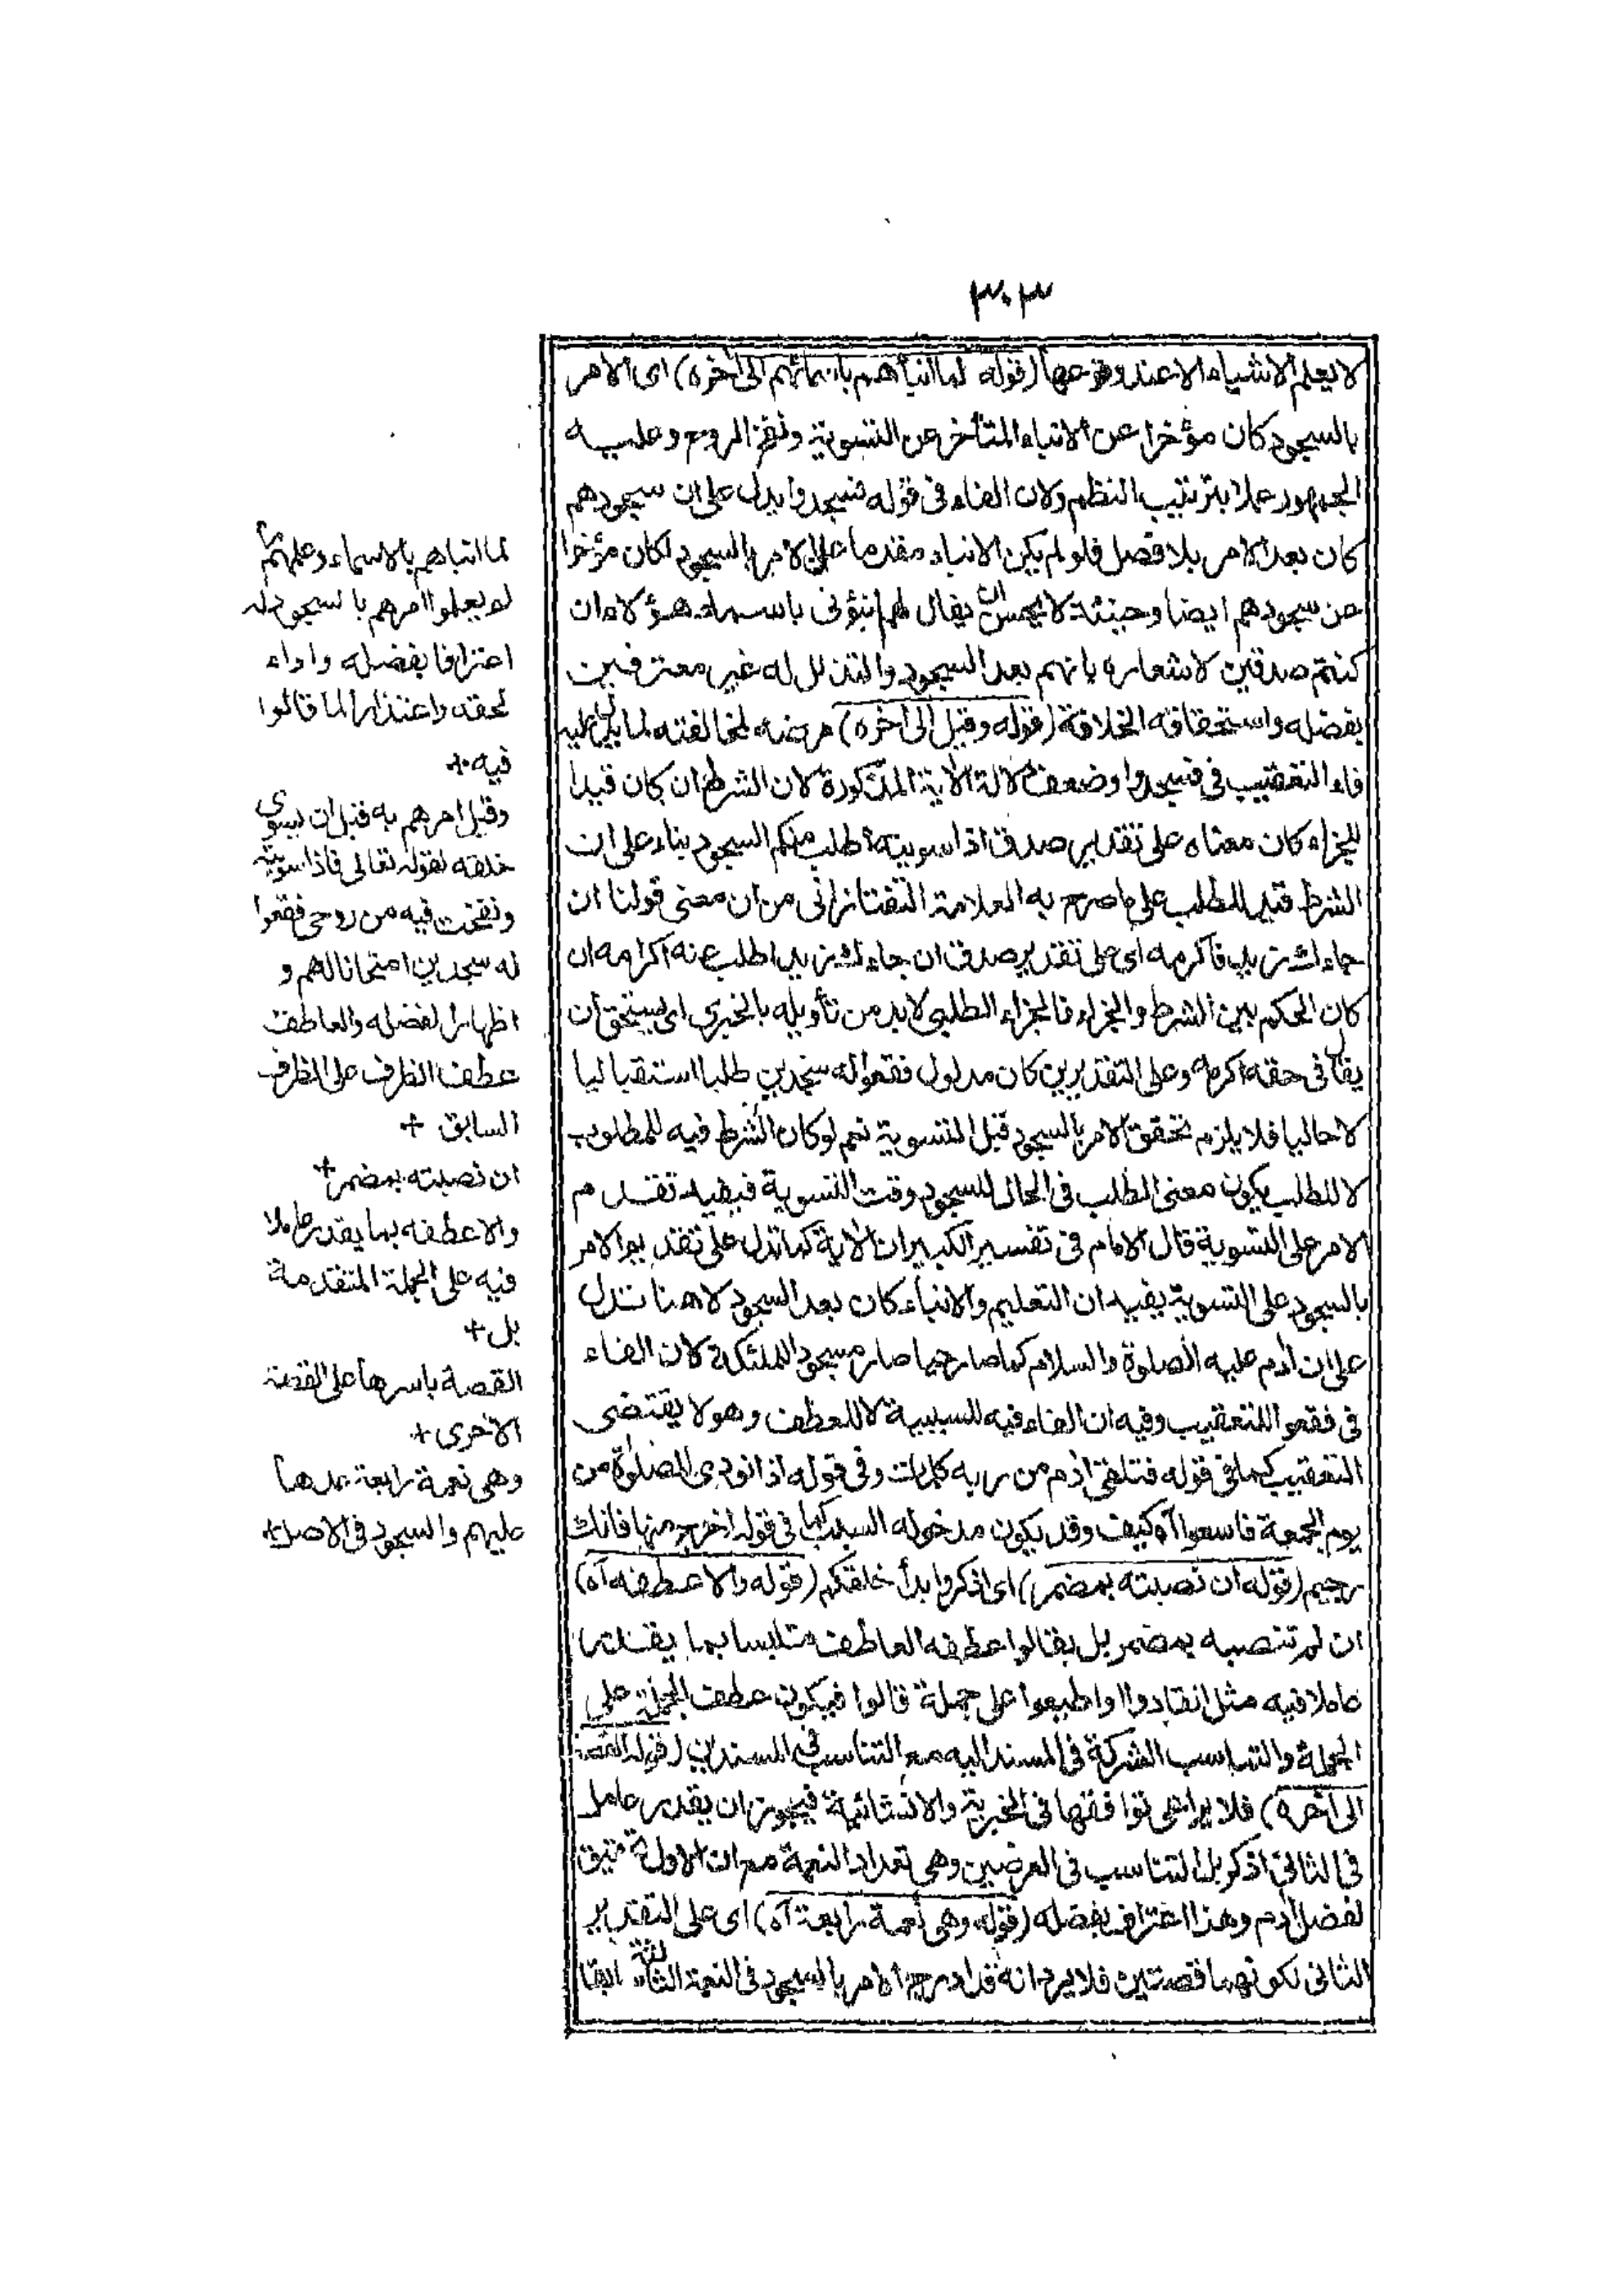 ٣٠٣
لا يعلم الاشياء الا عند وقوعها (قوله لما انبأهم باسمائهم الى اخره) اى الامر
بالسجود كان مؤخرا عن الانباء المتأخر عن التسوية ونفخ الروح وعليه
الجمهور عملا بترتيب النظم ولان الفاء فى قوله فسجدوا يدل على ان سجودهم
كان بعد الامر بلا فصل فلو لم يكن الانباء مقدما على الامر بالسجود لكان مؤخرا
عن سجودهم ايضا وحينئذ لا يحسن ان يقال لهم انبؤنى باسماء هؤلاء ان
كنتم صدقين لاشعاره بانهم بعد السجود والتذلل له غير معترفين
بفضله واستحقاقه الخلافة (قوله وقيل الى اخره) مرضه لمخالفته لما يدل عليه
فاء التعقيب فى فسجدوا وضعف دلالة الآية المذكورة لان الشرط ان كان قيدا
للجزاء كان معناه على تقدير صدق اذا سويته اطلب منكم السجود بناء على ان
الشرط قيد للطلب على ما صرح به العلامة التفتازانى من ان معنى قولنا ان
جاءك زيد فاكرمه اى على تقدير صدق ان جاءك زيد اطلب عنه اكرامه ان
كان الحكم بين الشرط والجزاء فالجزاء الطلبى لابد من تأويله بالخبرى اى يستحق ان
يقال فى حقه اكرمه وعلى التقديرين كان مدلول فقعوا له سجدين طلبا استقباليا
لا حاليا فلا يلزم تحقق الامر بالسجود قبل التسوية نعم لو كان الشرط فيه للمطلوب
لا للطلب يكون معنى الطلب فى الحال للسجود وقت التسوية فيفيد تقدم
الامر على التسوية قال الامام فى تفسير الكبير ان الآية كما تدل على تقديم الامر
بالسجود على التسوية يفيد ان التعليم والانباء كان بعد السجود لاهنا تدل
على ان ادم عليه الصلوة والسلام كما صار حيا صار مسجود الملئكة لان الفاء
فى فقعوا للتعقيب وفيه ان الفاء فيه للسببية لا للعطف وهو لا يقتضى
التعقيب كما فى قوله فتلقى ادم من ربه كلمات وفى قوله اذا نودى للصلوة من
يوم الجمعة فاسعوا آه كيف وقد يكون مدخوله السبب كما فى قوله اخرج منها فانك
رجيم (قوله ان نصبته بمضمر) اى اذكروا بدأ خلقكم (قوله والا عطفه آه)
ان لم تنصبه بمضمر بل بقالوا عطفه العاطف متلبسا بما يقدر
عاملا فيه مثل انقادوا واطيعوا على جملة قالوا فيكون عطف الجملة على
الجملة والتناسب الشركة فى المسند اليه مع التناسب فى المسندين (قوله القصة
الى اخره) فلا يراعى توافقها فى الخبرية والانشائية فيجوز ان يقدر عامل
فى الثانى اذكر بل التناسب فى الغرضين وهى تعداد النعمة مع ان الاول تحقيق
لفضل ادم وهذا اعتراف بفضله (قوله وهى نعمة رابعة آه) اى على التقدير
الثانى لكونهما قصتين فلا يرد انه قد ادرج الامر بالسجود فى النعمة الثالثة
لما انبأهم بالاسماء وعلمهم ما
لم يعلموا امرهم بالسجود له
اعترافا بفضله واداء
لحقه واعتذارا لما قالوا
فيه +
وقيل امرهم به قبل ان يسوى
خلقه لقوله تعالى فاذا سويته
ونفخت فيه من روحى فقعوا
له سجدين امتحانا لهم و
اظهارا لفضله والعاطف
عطف الظرف على الظرف
السابق +
ان نصبته بمضمر +
والا عطفه بما يقدر عاملا
فيه على الجملة المتقدمة
بل +
القصة باسرها على القصة
الاخرى +
وهى نعمة رابعة عدها
عليهم والسجود فى الاصل +